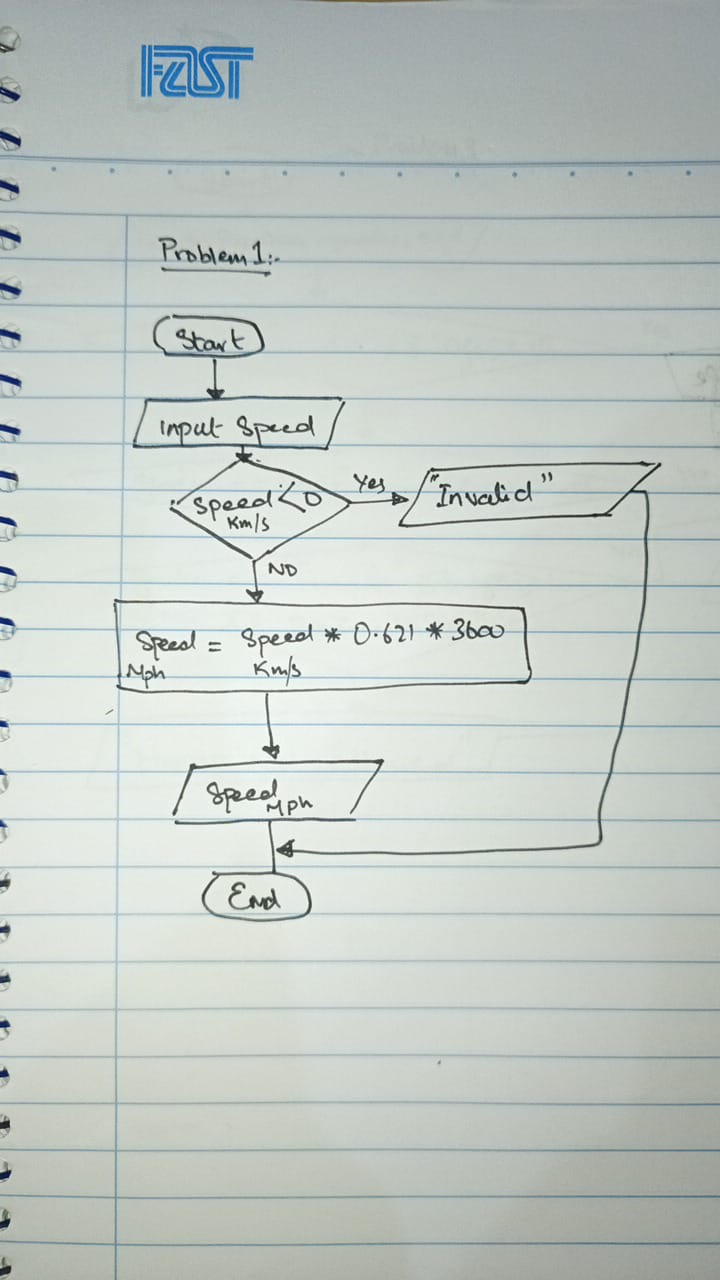 FAST
Problem 1:-
Start
Input Speed
Speed < 0
Km/s
Yes
"Invalid"
NO
Speed = Speed * 0.621 * 3600
Mph Km/s
Speed
Mph
End